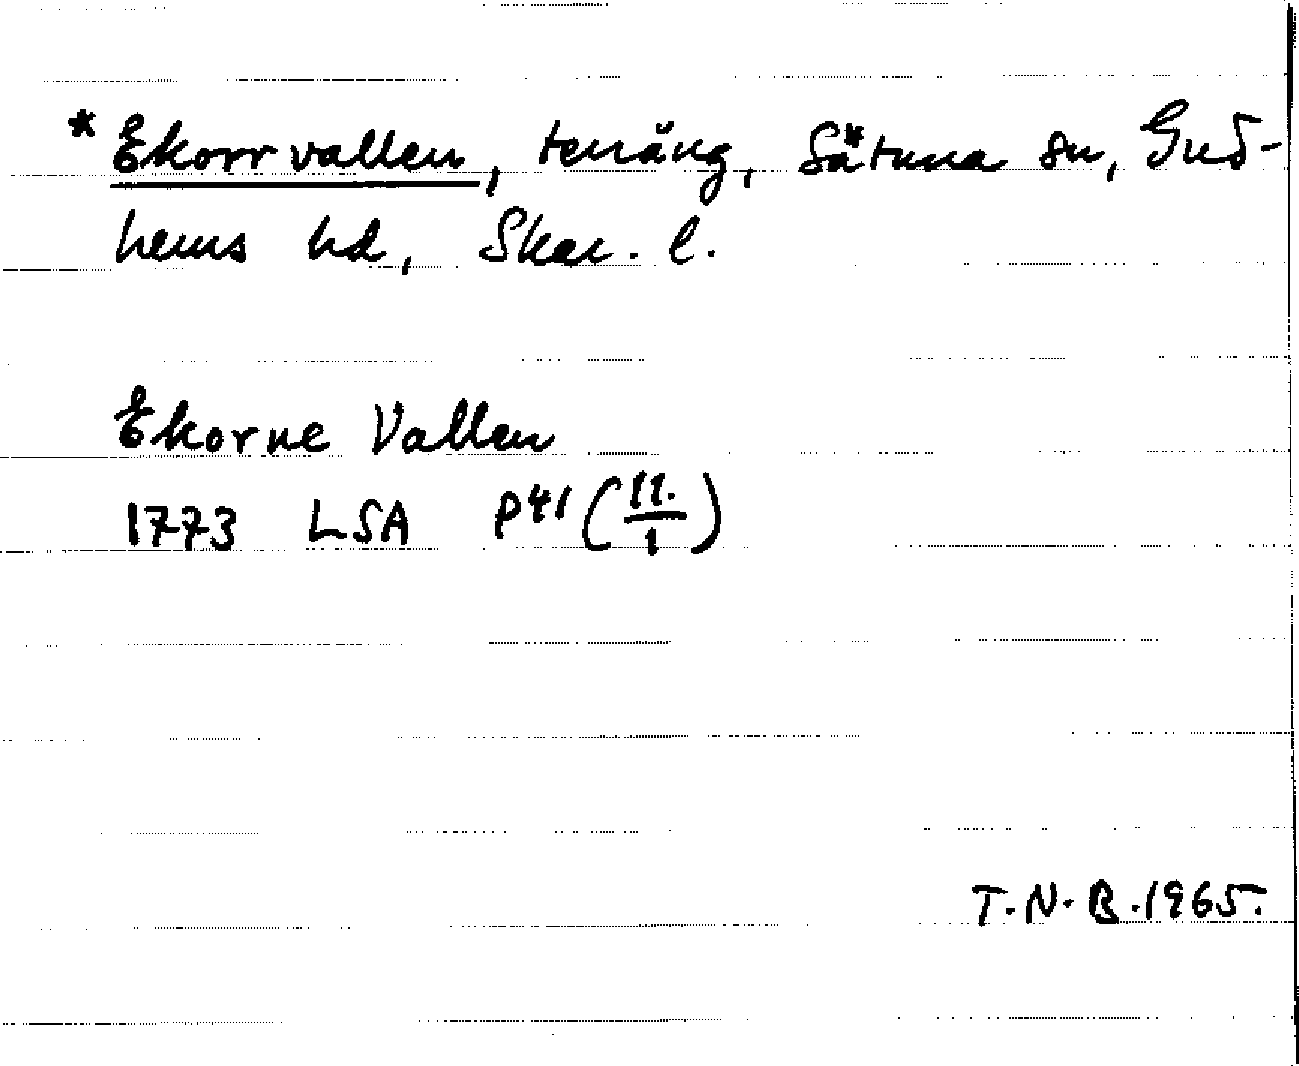 * Ekorrvallen, terräng, Sätuna sn, Gud-
hems hd, Skar. l.
Ekorne Vallen
1773 LSA P41 (11./1)
T.N.B. 1965.